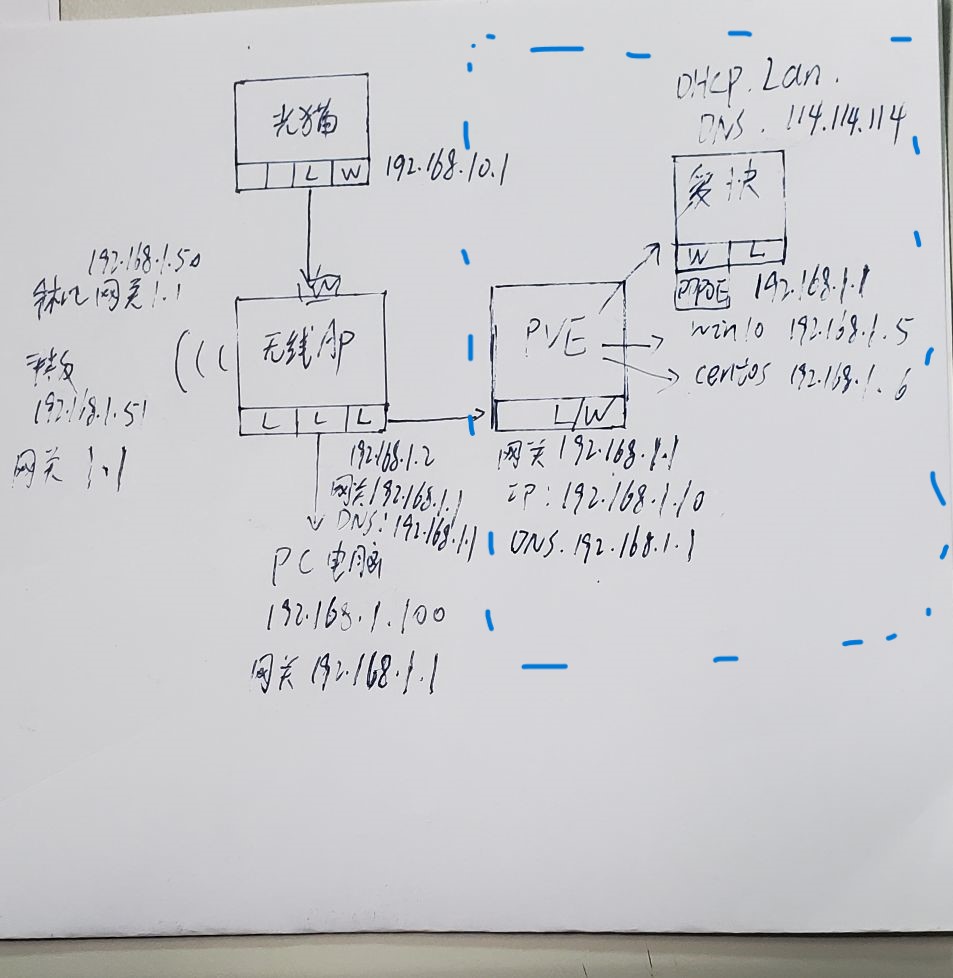 光猫
L W
192.168.10.1
DHCP. Lan.
DNS. 114.114.114
爱快
W L
PPPOE
192.168.1.1
win10 192.168.1.5
centos 192.168.1.6
192.168.1.50
网关 1.1
192.168.1.51
网关 1.1
W
无线AP
L L L
192.168.1.2
网关192.168.1.1
DNS:192.168.1.1
PC电脑
192.168.1.100
网关 192.168.1.1
PVE
L/W
网关 192.168.1.1
IP:192.168.1.10
DNS.192.168.1.1